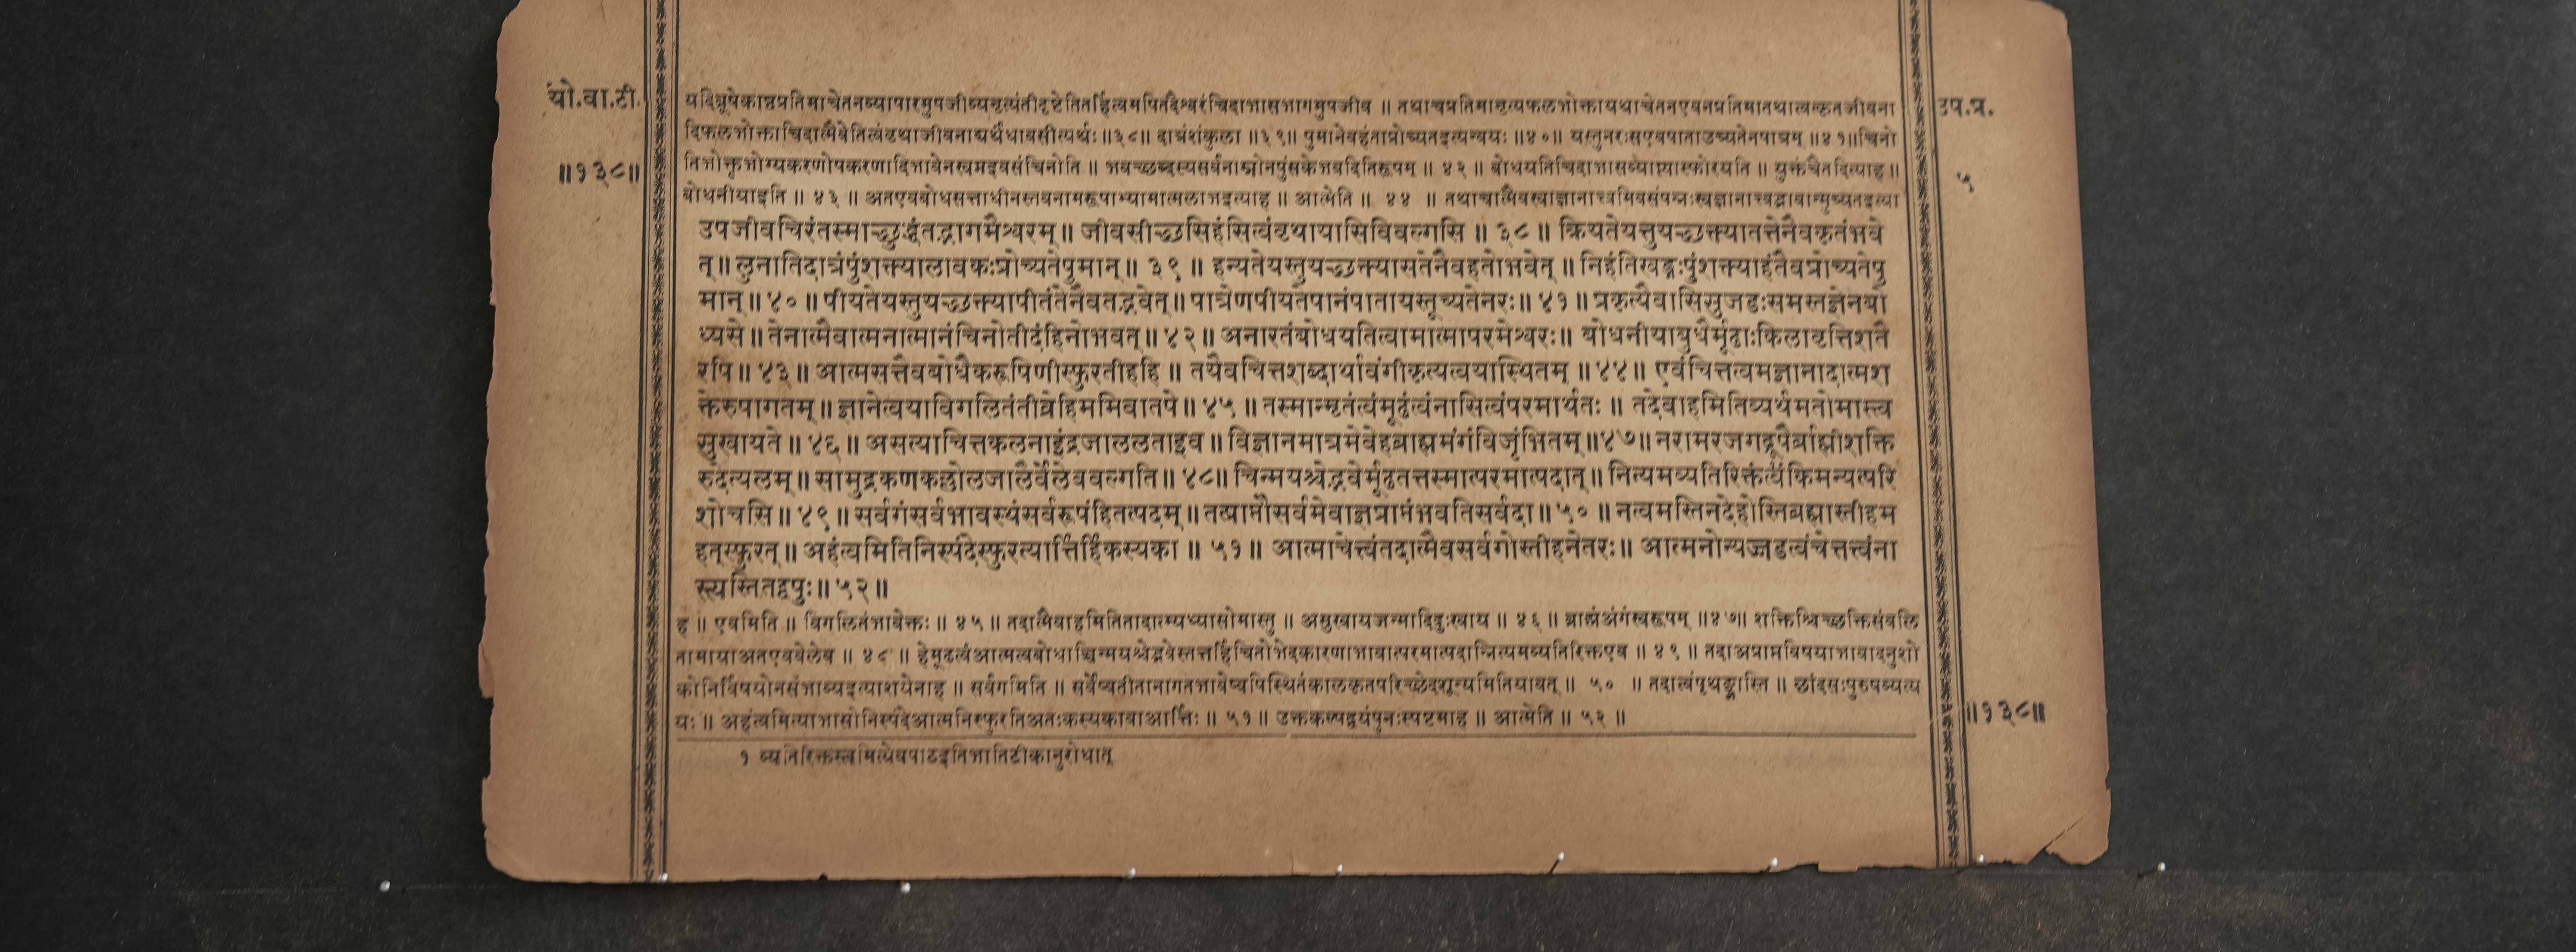 यो.वा.टी.
॥१३८॥
यदिब्रूषेकाष्ठप्रतिमाचेतनव्यापारमुपजीव्यनृत्यंतीदृष्टेतितर्हित्वमपितदैश्वरंचिदाभासभागमुपजीव ॥ तथाचप्रतिमानृत्यफलभोक्तायथाचेतनएवनप्रतिमातथात्वत्कृतजीवना
दिफलभोक्ताचिदात्मैवेतित्वंवृथाजीवनाद्यर्थंधावसीत्यर्थः॥३८॥ दात्रंशंकुला ॥३९॥ पुमानेवहंताप्रोच्यतइत्यन्वयः ॥४०॥ यस्तुनरःसएवपाताउच्यतेनपात्रम् ॥४१॥चिनो
तिभोक्तृभोग्यकरणोपकरणादिभावेनस्वप्नइवसंचिनोति ॥ भवच्छब्दस्यसर्वनाम्नोनपुंसकेभवदितिरूपम् ॥ ४२ ॥ बोधयतिचिदाभासव्याप्त्यास्फोरयति ॥ युक्तंचैतदित्याह॥
बोधनीयाइति ॥ ४३ ॥ अतएवबोधसत्ताधीनस्तवनामरूपाभ्यामात्मलाभइत्याह ॥ आत्मेति ॥ ४४ ॥ तथाचात्मैवस्वाज्ञानात्त्वमिवसंपन्नःस्वज्ञानात्त्वद्भावान्मुच्यतइत्या
उपजीवचिरंतस्माच्छुद्धंतद्भागमैश्वरम्॥ जीवसीच्छसिहंसित्वंवृथायासिविवल्गसि ॥ ३८ ॥ क्रियतेयत्तुयच्छक्त्यातत्तेनैवकृतंभवे
त्॥ लुनातिदात्रंपुंशक्त्यालावकःप्रोच्यतेपुमान्॥ ३९ ॥ हन्यतेयस्तुयच्छक्त्यासतेनैवहतोभवेत्॥ निहंतिखड्गःपुंशक्त्याहंतैवप्रोच्यतेपु
मान्॥४०॥पीयतेयस्तुयच्छक्त्यापीतंतेनैवतद्भवेत्॥पात्रेणपीयतेपानंपातायस्तूच्यतेनरः॥ ४१ ॥ प्रकृत्यैवासिसुजडःसमस्तज्ञेनबो
ध्यसे॥तेनात्मैवात्मनात्मानंचिनोतीदंहिनोभवत्॥४२॥ अनारतंबोधयतित्वामात्मापरमेश्वरः॥ बोधनीयाबुधैर्मूढाःकिलावृत्तिशतै
रपि॥ ४३॥ आत्मसत्तैवबोधैकरूपिणीस्फुरतीहहि ॥ तयैवचित्तशब्दार्थावंगीकृत्यत्वयास्थितम् ॥४४॥ एवंचित्तत्वमज्ञानादात्मश
क्तेरुपागतम्॥ज्ञानेत्वयाविगलितंतीव्रेहिममिवातपे॥४५॥तस्मान्मृतंत्वंमूढंत्वंनासित्वंपरमार्थतः ॥ तदेवाहमितिव्यर्थमतोमास्त्व
सुखायते॥४६॥ असत्याचित्तकलनाइंद्रजाललताइव॥विज्ञानमात्रमेवेहब्राह्ममंगंविजृंभितम्॥४७॥नरामरजगद्रूपैर्ब्राह्मीशक्ति
रुदेत्यलम्॥सामुद्रकणकल्लोलजालैर्वेलेववल्गति॥४८॥चिन्मयश्चेद्भवेर्मूढतत्तस्मात्परमात्पदात्॥ नित्यमव्यतिरिक्तंत्वंकिमन्यत्परि
शोचसि॥४९॥सर्वगंसर्वभावस्थंसर्वरूपंहितत्पदम्॥तत्प्राप्तौसर्वमेवाज्ञप्राप्तंभवतिसर्वदा॥५०॥नत्वमस्तिनदेहोस्तिब्रह्मास्तीहम
हत्स्फुरत्॥ अहंत्वमितिनिर्स्पंदेस्फुरत्यार्त्तिर्हिकस्यका ॥ ५१॥ आत्माचेत्त्वंतदात्मैवसर्वगोस्तीहनेतरः॥ आत्मनोन्यज्जडत्वंचेत्तत्त्वंना
स्त्यस्तितद्वपुः॥५२॥
ह ॥ एवमिति ॥ विगलितंभावेक्तः॥ ४५॥ तदात्मैवाहमितितादात्म्यध्यासोमास्तु ॥ असुखायजन्मादिदुःखाय ॥ ४६॥ ब्राह्मंअंगंस्वरूपम् ॥४७॥ शक्तिश्चिच्छक्तिसंवलि
तामायाअतएववेलेव ॥ ४८ ॥ हेमूढत्वंआत्मत्वबोधाच्चिन्मयश्चेद्भवेस्तत्तर्हिचितोभेदकारणाभावात्परमात्पदान्नित्यमव्यतिरिक्तएव ॥ ४९ ॥ तदाअप्राप्तविषयाभावादनुशो
कोनिर्विषयोनसंभाव्यइत्याशयेनाह ॥ सर्वगमिति ॥ सर्वेष्वतीतानागतभावेष्वपिस्थितंकालकृतपरिच्छेदशून्यमितियावत् ॥ ५० ॥ तदात्वंपृथङ्नास्ति ॥ छांदसःपुरुषव्यत्य
यः ॥ अहंत्वमित्याभासोनिर्स्पंदेआत्मनिस्फुरतिअतःकस्यकावाआर्त्तिः ॥ ५१ ॥ उक्तकल्पद्वयंपुनःस्पष्टमाह ॥ आत्मेति ॥ ५२ ॥
१ व्यतिरिक्तस्त्वमित्येवपाठइतिभातिटीकानुरोधात्
उप.प्र.
५
॥१३८॥